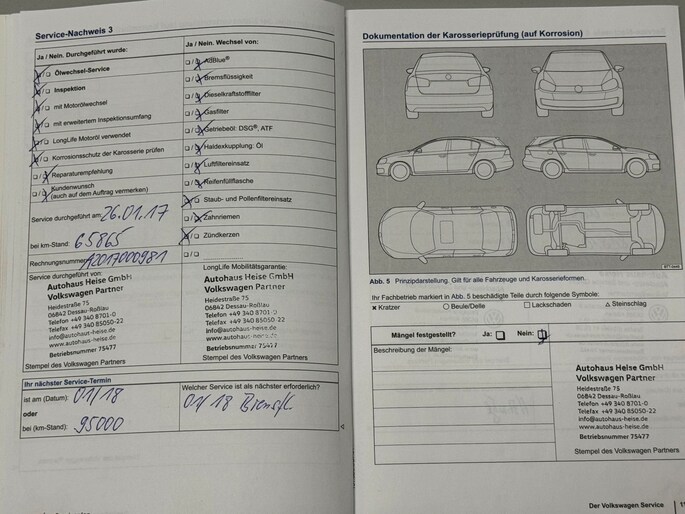 Service-Nachweis 3
Ja / Nein. Durchgeführt wurde:
Ja / Nein. Wechsel von:
Ölwechsel-Service
Inspektion
mit Motorölwechsel
mit erweitertem Inspektionsumfang
LongLife Motoröl verwendet
Korrosionsschutz der Karosserie prüfen
Reparaturempfehlung
Kundenwunsch
(auch auf dem Auftrag vermerken)
AdBlue®
Bremsflüssigkeit
Dieselkraftstofffilter
Gasfilter
Getriebeöl: DSG®, ATF
Haldexkupplung: Öl
Luftfiltereinsatz
Reifenfüllflasche
Staub- und Pollenfiltereinsatz
Zahnriemen
Zündkerzen
Service durchgeführt am: 26.01.17
bei km-Stand: 65865
Rechnungsnummer: A2017000981
Service durchgeführt von:
Autohaus Heise GmbH
Volkswagen Partner
Heidestraße 75
06842 Dessau-Roßlau
Telefon +49 340 8701-0
Telefax +49 340 85050-22
info@autohaus-heise.de
www.autohaus-heise.de
Betriebsnummer 75477
Stempel des Volkswagen Partners
LongLife Mobilitätsgarantie:
Autohaus Heise GmbH
Volkswagen Partner
Heidestraße 75
06842 Dessau-Roßlau
Telefon +49 340 8701-0
Telefax +49 340 85050-22
info@autohaus-heise.de
www.autohaus-heise.de
Betriebsnummer 75477
Stempel des Volkswagen Partners
Ihr nächster Service-Termin
ist am (Datum): 01/18
oder
bei (km-Stand): 95000
Welcher Service ist als nächster erforderlich?
01/18
Dokumentation der Karosserieprüfung (auf Korrosion)
Abb. 5 Prinzipdarstellung. Gilt für alle Fahrzeuge und Karosserieformen.
Ihr Fachbetrieb markiert in Abb. 5 beschädigte Teile durch folgende Symbole:
× Kratzer ○ Beule/Delle □ Lackschaden △ Steinschlag
Mängel festgestellt? Ja: Nein:
Beschreibung der Mängel:
Autohaus Heise GmbH
Volkswagen Partner
Heidestraße 75
06842 Dessau-Roßlau
Telefon +49 340 8701-0
Telefax +49 340 85050-22
info@autohaus-heise.de
www.autohaus-heise.de
Betriebsnummer 75477
Stempel des Volkswagen Partners
Der Volkswagen Service